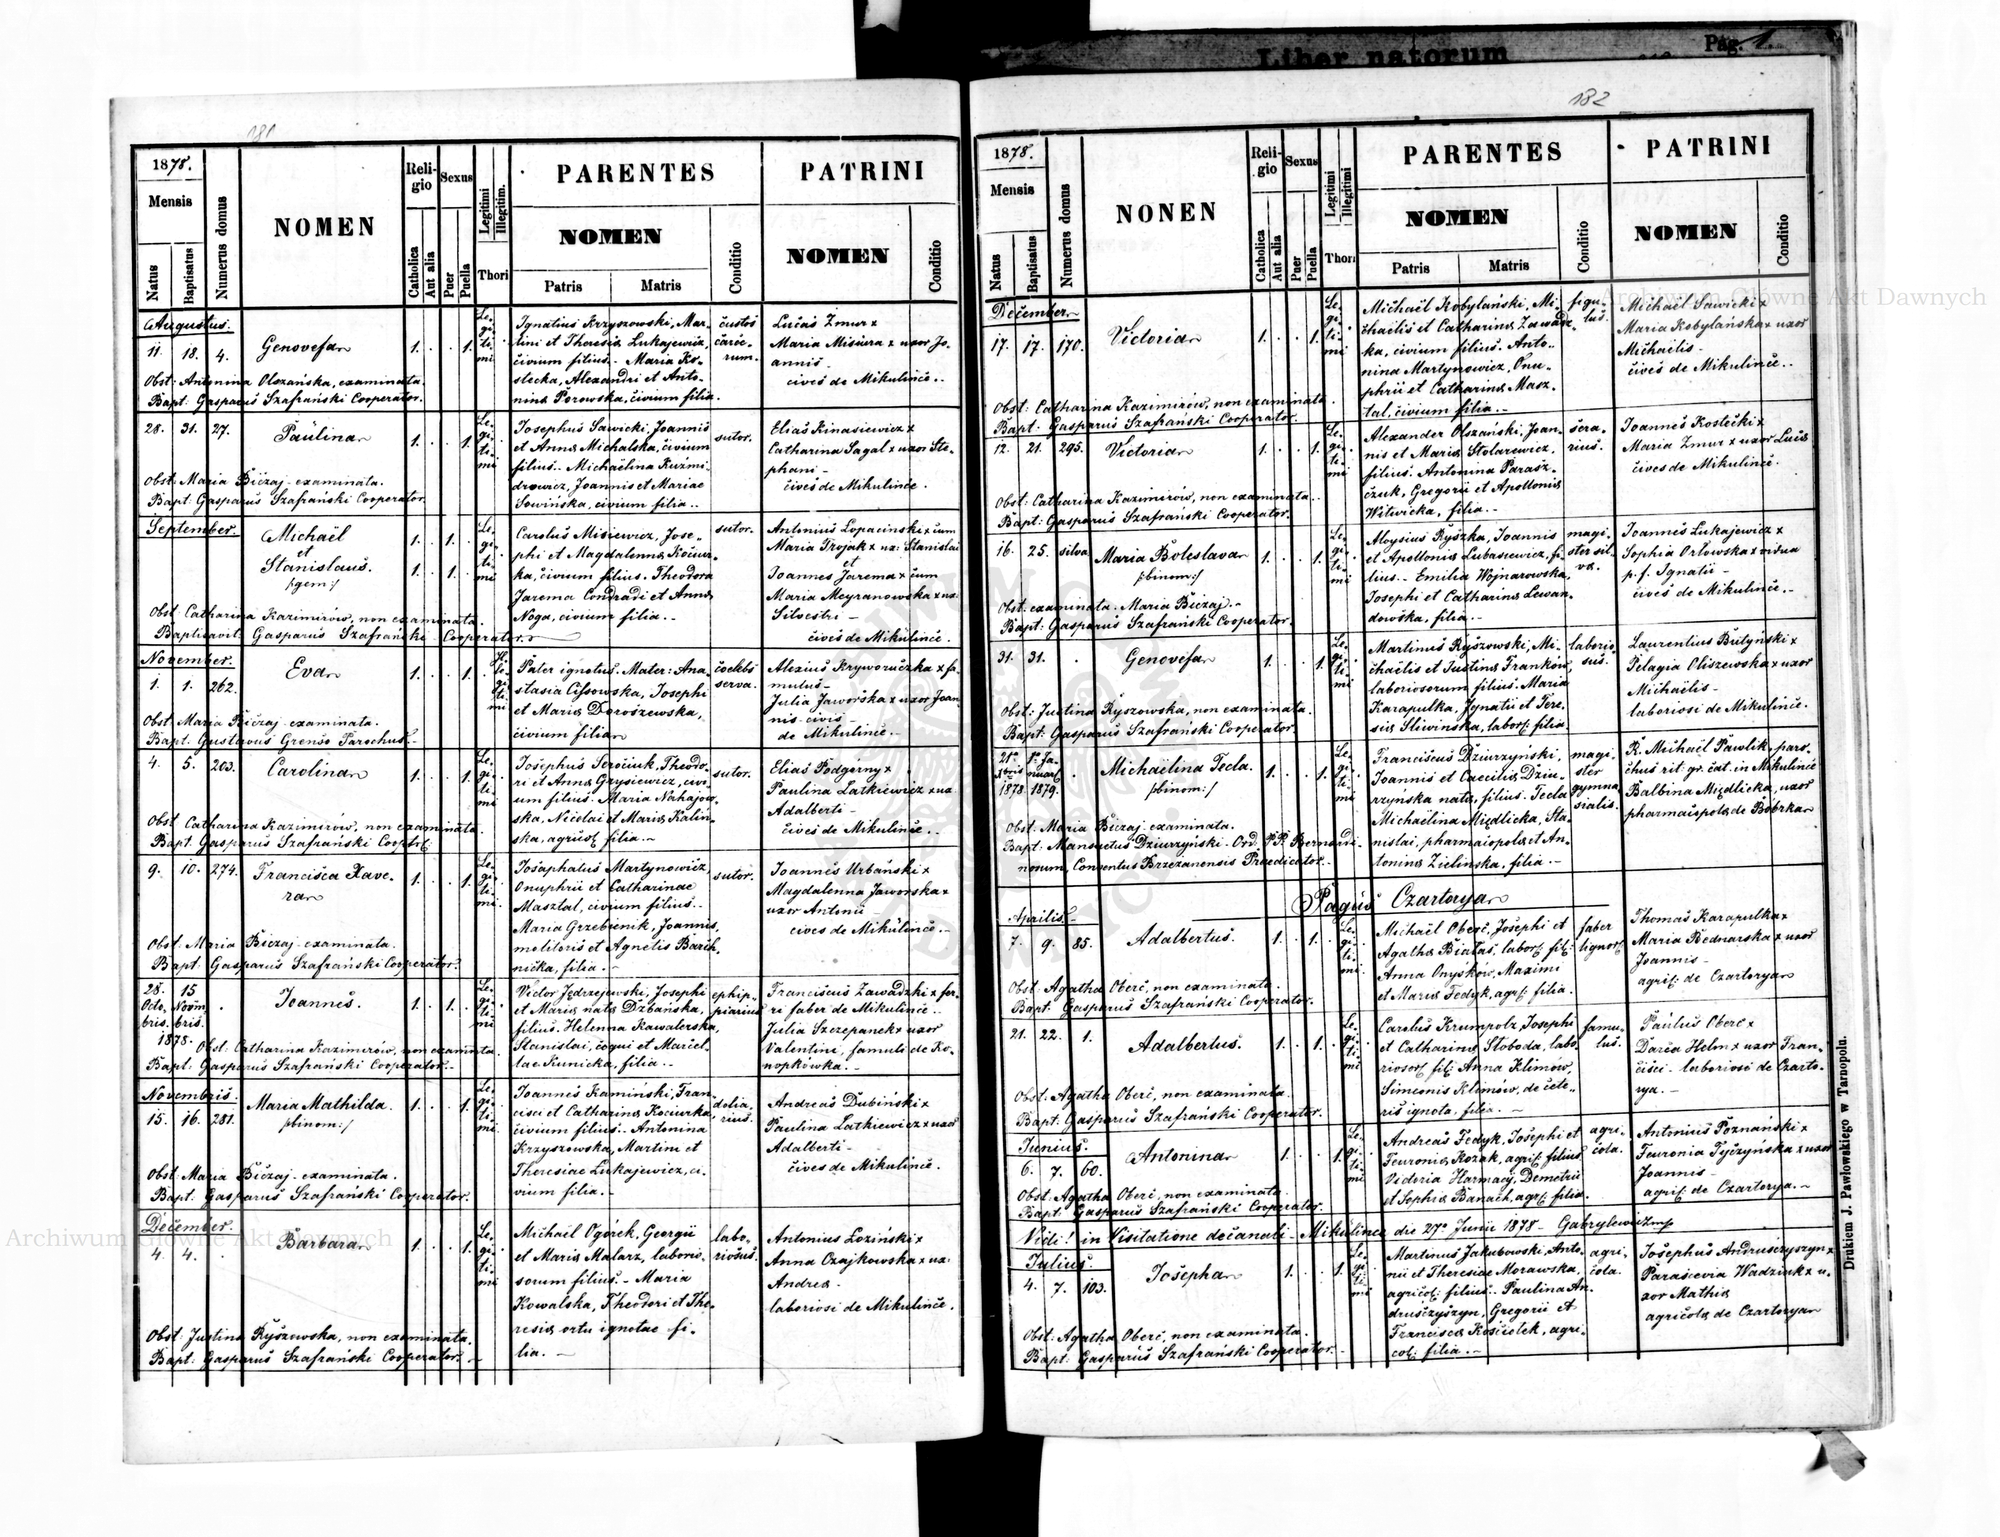 Liber natorum
Pag. 1
181
1878.
Mensis
Natus
Baptisatus
Numerus domus
NOMEN
Religio
Catholica
Aut alia
Sexus
Puer
Puella
Legitimi
Illegitim.
Thori
PARENTES
NOMEN
Patris
Matris
Conditio
PATRINI
NOMEN
Conditio
Augustus.
11. 18. 4. Genovefa 1. 1. Legitimi
Ignatius Krzyszowski, Mar-
tini et Theresiæ Lukajewicz,
civium filius.- Maria Ko-
stecka, Alexandri et Anto-
ninæ Porowska, civium filia.
custos
carce-
rum.
Lucas Zmur x
Maria Misiura x uxor Jo-
annis
cives de Mikulińce..
Obst: Antonina Olszańska, examinata.
Bapt: Gasparus Szafrański Cooperator.
28. 31. 27. Paulina 1. 1. Legitimi
Josephus Sawicki, Joannis
et Annæ Michalska, civium
filius.- Michaëlina Kuźmi-
drowicz, Joannis et Mariae
Sowińska, civium filia..
sutor.
Elias Kinasiewicz x
Catharina Sagal x uxor Ste-
phani -
cives de Mikulińce.
Obst: Maria Biczaj examinata.
Bapt: Gasparus Szafrański Cooperator.
September.
Michaël
et
Stanislaus.
/:gem:/
1. 1.
1. 1.
Legitimi
Carolus Misiewicz, Jose-
phi et Magdalenæ Kociur-
ka, civium filius. Theodora
Jarema Condradi et Annæ
Noga, civium filia..
sutor.
Antonius Lopaciński x cum
Maria Trojak x ux: Stanislai
et
Joannes Jarema x cum
Maria Meyranowska x ux.
Silvestri -
cives de Mikulińce.
Obst: Catharina Kazimirów, non examinata.
Baptisavit: Gasparus Szafrański Cooperator.
November.
1. 1. 262. Eva 1. 1. Illegitimi
Pater ignotus. Mater: Ana-
stasia Cissowska, Josephi
et Mariæ Doroszewska,
civium filia
coelebs
serva.
Alexius Kryworuczka x fa-
mulus -
Julia Jaworska x uxor Joan-
nis civis -
de Mikulińce.-
Obst: Maria Biczaj examinata.
Bapt: Gustavus Grenso Parochus.-
4. 5. 203. Carolina 1. 1. Legitimi
Josephus Serociuk, Theodo-
ri et Annæ Grysiewicz, civi-
um filius. Maria Nahajow-
ska, Nicolai et Mariæ Kalin-
ska, agricol: filia.-
sutor.
Elias Podgórny x
Paulina Latkiewicz x ux.
Adalberti -
cives de Mikulińce..
Obst: Catharina Kazimirów, non examinata.
Bapt: Gasparus Szafrański Cooptr:
9. 10. 274. Francisca Xave-
ra 1. 1. Legitimi
Josaphatus Martynowicz,
Onuphrii et Catharinae
Masztal, civium filius..
Maria Grzebienik, Joannis,
molitoris et Agnetis Barch-
nicka, filia.-
sutor.
Joannes Urbański x
Magdalenna Jaworska x
uxor Antonii -
cives de Mikulińce..
Obst: Maria Biczaj examinata.
Bapt: Gasparus Szafrański Cooperator.
28. 15.
Octo- Novem-
bris. bris.
1878.
Joannes. 1. 1. Legitimi
Victor Jędrzejewski, Josephi
et Mariæ natæ Dzbańska,
filius. Helenna Kawalerska,
Stanislai, coqui et Marcel-
lae Kunicka, filia.-
ephip-
piarius
Franciscus Zawadzki x fer-
ri faber de Mikulińce..
Julia Szczepanek x uxor
Valentini, famuli de Ko-
nopkówka.-
Obst: Catharina Kazimirów, non examinata.
Bapt: Gasparus Szafrański Cooperator.-
Novembris.
15. 16. 281. Maria Mathilda.
/:binom:/ 1. 1. Legitimi
Joannes Kamiński, Fran-
cisci et Catharinæ Kociurka,
civium filius.- Antonina
Krzyszowska, Martini et
Theresiae Lukajewicz, ci-
vium filia.-
dolia-
rius.
Andreas Dubiński x
Paulina Latkiewicz x uxor
Adalberti -
cives de Mikulińce.
Obst: Maria Biczaj examinata.
Bapt: Gasparus Szafrański Cooperator.
December.
4. 4. Barbara 1. 1. Legitimi
Michaël Ogórek, Georgii
et Mariæ Malarz, laborio-
sorum filius.- Maria
Kowalska, Theodori et The-
resiæ ortu ignotae fi-
lia.-
labo-
riosus.
Antonius Loziński x
Anna Czajkowska x ux:
Andreæ -
laboriosi de Mikulińce.
Obst: Justina Ryszowska, non examinata.
Bapt: Gasparus Szafrański Cooperator.-
182
1878.
Mensis
Natus
Baptisatus
Numerus domus
NONEN
Religio
Catholica
Aut alia
Sexus
Puer
Puella
Legitimi
Illegitimi
Thori
PARENTES
NOMEN
Patris
Matris
Conditio
PATRINI
NOMEN
Conditio
December.
17. 17. 170. Victoria 1. 1. Legitimi
Michaël Kobylański, Mi-
chaëlis et Catharinæ Zawadz-
ka, civium filius. Anto-
nina Martynowicz, Onu-
phrii et Catharinæ Masz-
tal, civium filia.-
figu-
lus.
Michaël Sawicki x
Maria Kobylańska x uxor
Michaëlis -
cives de Mikulińce..
Obst: Catharina Kazimirów, non examinata.
Bapt: Gasparus Szafrański Cooperator.
12. 21. 295. Victoria 1. 1. Legitimi
Alexander Olszański, Joan-
nis et Mariæ Stolarewicz,
filius. Antonina Parasz-
czuk, Gregorii et Apolloniæ
Witwicka, filia..
sera-
rius.
Joannes Kostecki x
Maria Zmur x uxor Lucæ
cives de Mikulińce.
Obst: Catharina Kazimirów, non examinata.
Bapt: Gasparus Szafrański Cooperator.
16. 25. silva Maria Boleslava
/:binom:/ 1. 1. Legitimi
Aloysius Ryszka, Joannis
et Apolloniæ Lubasiewicz, fi-
lius.- Emilia Wojnarowska,
Josephi et Catharinæ Lewan-
dowska, filia.-
magi-
ster sil-
væ.
Joannes Lukajewicz x
Sophia Orłowska x vidua
p. f. Ignatii -
cives de Mikulińce.-
Obst. examinata. Maria Biczaj.-
Bapt: Gasparus Szafrański Cooperator.
31. 31. Genovefa 1. 1. Legitimi
Martinus Ryszowski, Mi-
chaëlis et Justinæ Franków,
laboriosorum filius. Maria
Karapulka, Ignatii et Tere-
siæ Sliwińska, labors: filia
laborio-
sus.
Laurentius Butyński x
Pelagia Oliszewska x uxor
Michaëlis -
laboriosi de Mikulińce.
Obst: Justina Ryszowska, non examinata.
Bapt: Gasparus Szafrański Cooperator.
21ª 1ª Ja-
Xbris nuar:
1878. 1879.
Michaëlina Tecla.
/:binom:/ 1. 1. Legitimi
Franciscus Dziurzyński,
Joannis et Caeciliæ Dziu-
rzyńska natæ, filius. Tecla
Michaëlina Międlicka, Sta-
nislai, pharmaiopolæ et An-
toninæ Zielińska, filia.-
magi-
ster
gymna-
sialis.
R. Michaël Pawlik, paro-
chus rit: gr. cat. in Mikulińce
Balbina Międlicka, uxor
pharmaiopolæ de Bobrka
Obst: Maria Biczaj examinata.
Bapt: Mansuetus Dziurzyński - Ord. P.P. Bernardi-
norum, Conventus Brzezanensis Praedicator.-
Pagus Czartorya
Aprilis.
7. 9. 85. Adalbertus. 1. 1. Legitimi.
Michaël Oberc, Josephi et
Agathæ Białas, labors: fil:
Anna Onyśków, Maximi
et Mariæ Fedyk, agr: filia.
faber
lignor:
Thomas Karapulka x
Maria Bednarska x uxor
Joannis -
agric: de Czartorya
Obst: Agatha Oberc, non examinata.
Bapt: Gasparus Szafrański Cooperator.
21. 22. 1. Adalbertus. 1. 1. Legitimi
Carolus Krumpolz, Josephi
et Catharinæ Sloboda, labo-
riosor: fil: Anna Klimów,
Simeonis Klimów, de cete-
ris ignota, filia.-
famu-
lus.
Paulus Oberc x
Daria Helm x uxor Fran-
cisci - laboriosi de Czarto-
rya.-
Obst: Agatha Oberc, non examinata.
Bapt: Gasparus Szafrański Cooperator.
Junius.
6. 7. 60. Antonina 1. 1. Legitimi
Andreas Fedyk, Josephi et
Feuroniæ Kozak, agric: filius
Victoria Harmacy, Demetrii
et Sophiæ Banach, agr: filia.
agri-
cola.
Antonius Poznański x
Feuronia Tyczyńska x uxor
Joannis -
agric: de Czartorya.-
Obst: Agatha Oberc, non examinata.
Bapt: Gasparus Szafrański Cooperator.
Vidi! in Visitatione decanali - Mikulince die 27ª Junii 1878 - Gabrylewicz mp
Julius.
4. 7. 103. Josepha 1. 1. Legitimi
Martinus Jakubowski, Anto-
nii et Theresiae Morawska,
agricol: filius. Paulina An-
druszczyszyn, Gregorii et
Franciscæ Kościołek, agri-
col: filia.-
agri-
cola.
Josephus Andrusczyszyn x
Parascevia Wadziuk x u-
xor Mathiæ
agricolæ de Czartorya
Obst: Agatha Oberc, non examinata.
Bapt: Gasparus Szafrański Cooperator.-
Drukiem J. Pawłowskiego w Tarnopolu.
Archiwum Główne Akt Dawnych
Archiwum Główne Akt Dawnych